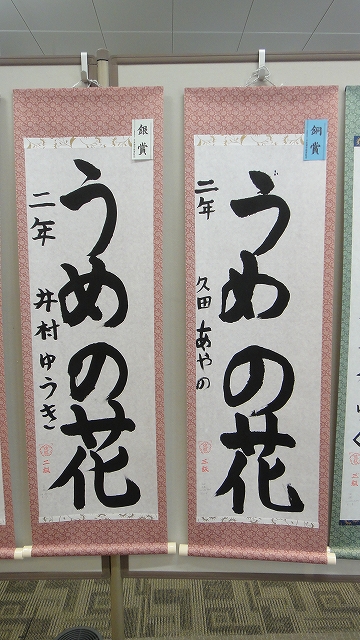 銀賞
うめの花
二年
井村ゆうき
二段
銅賞
うめの花
二年
久田あやの